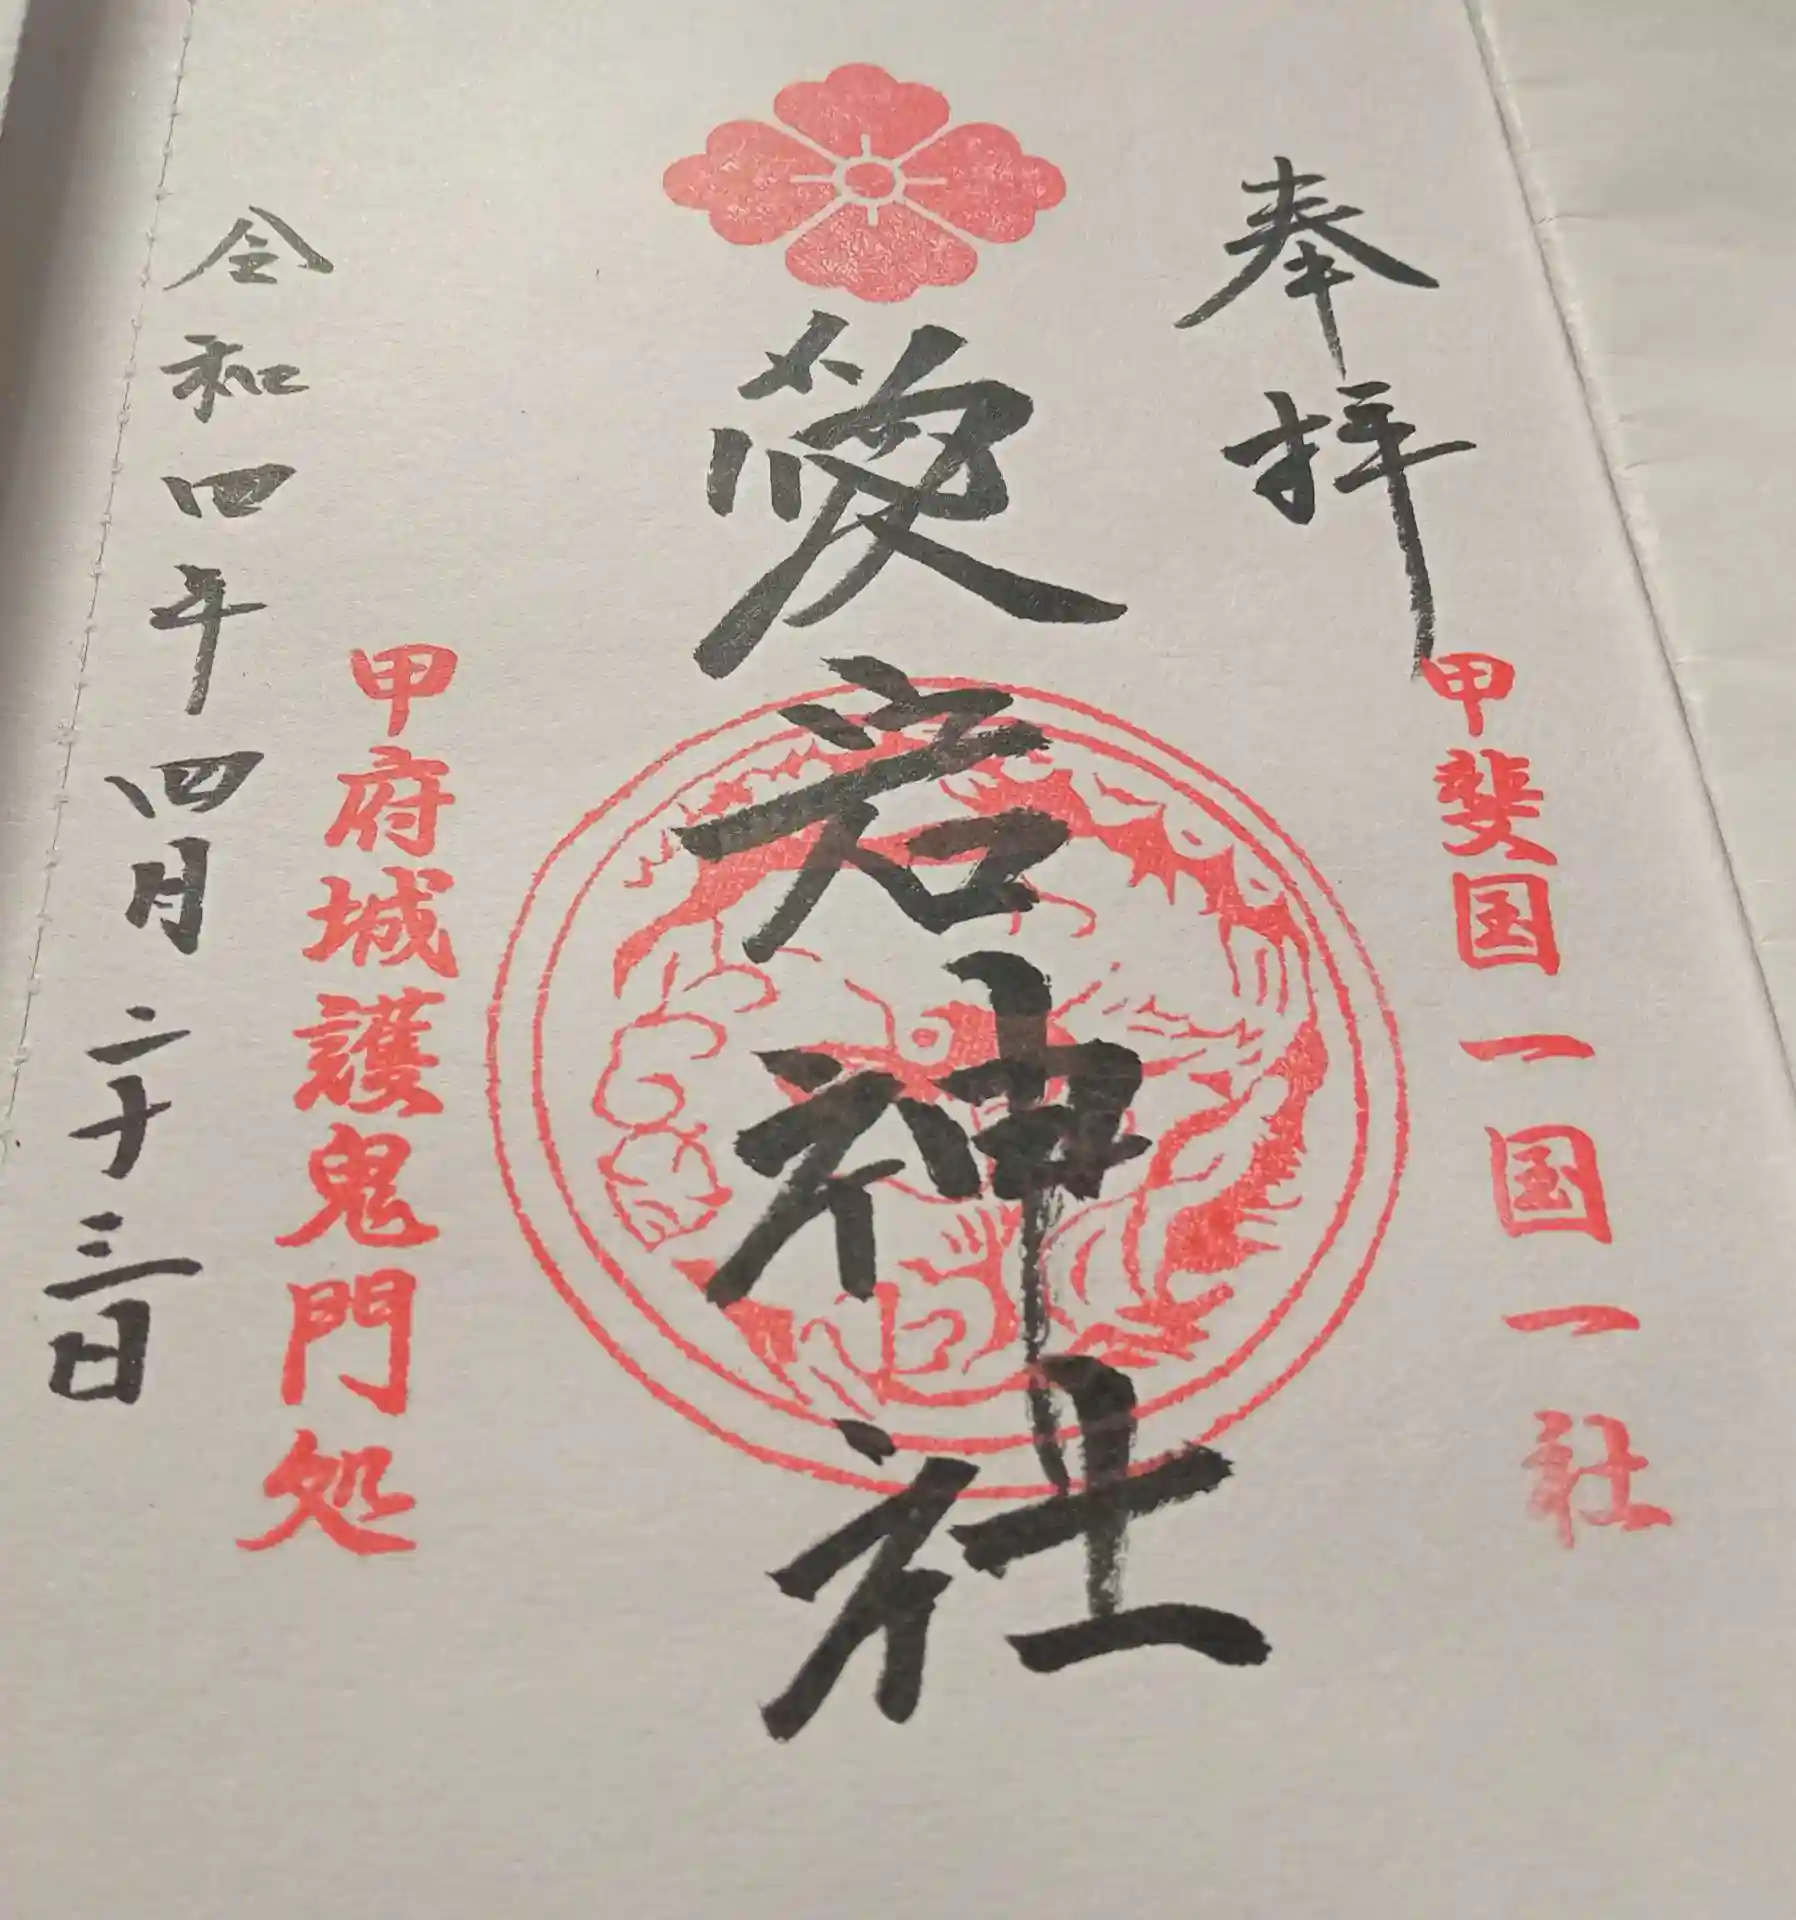 奉拝
甲斐国一国一社
愛宕神社
甲府城護鬼門処
令和四年四月二十三日